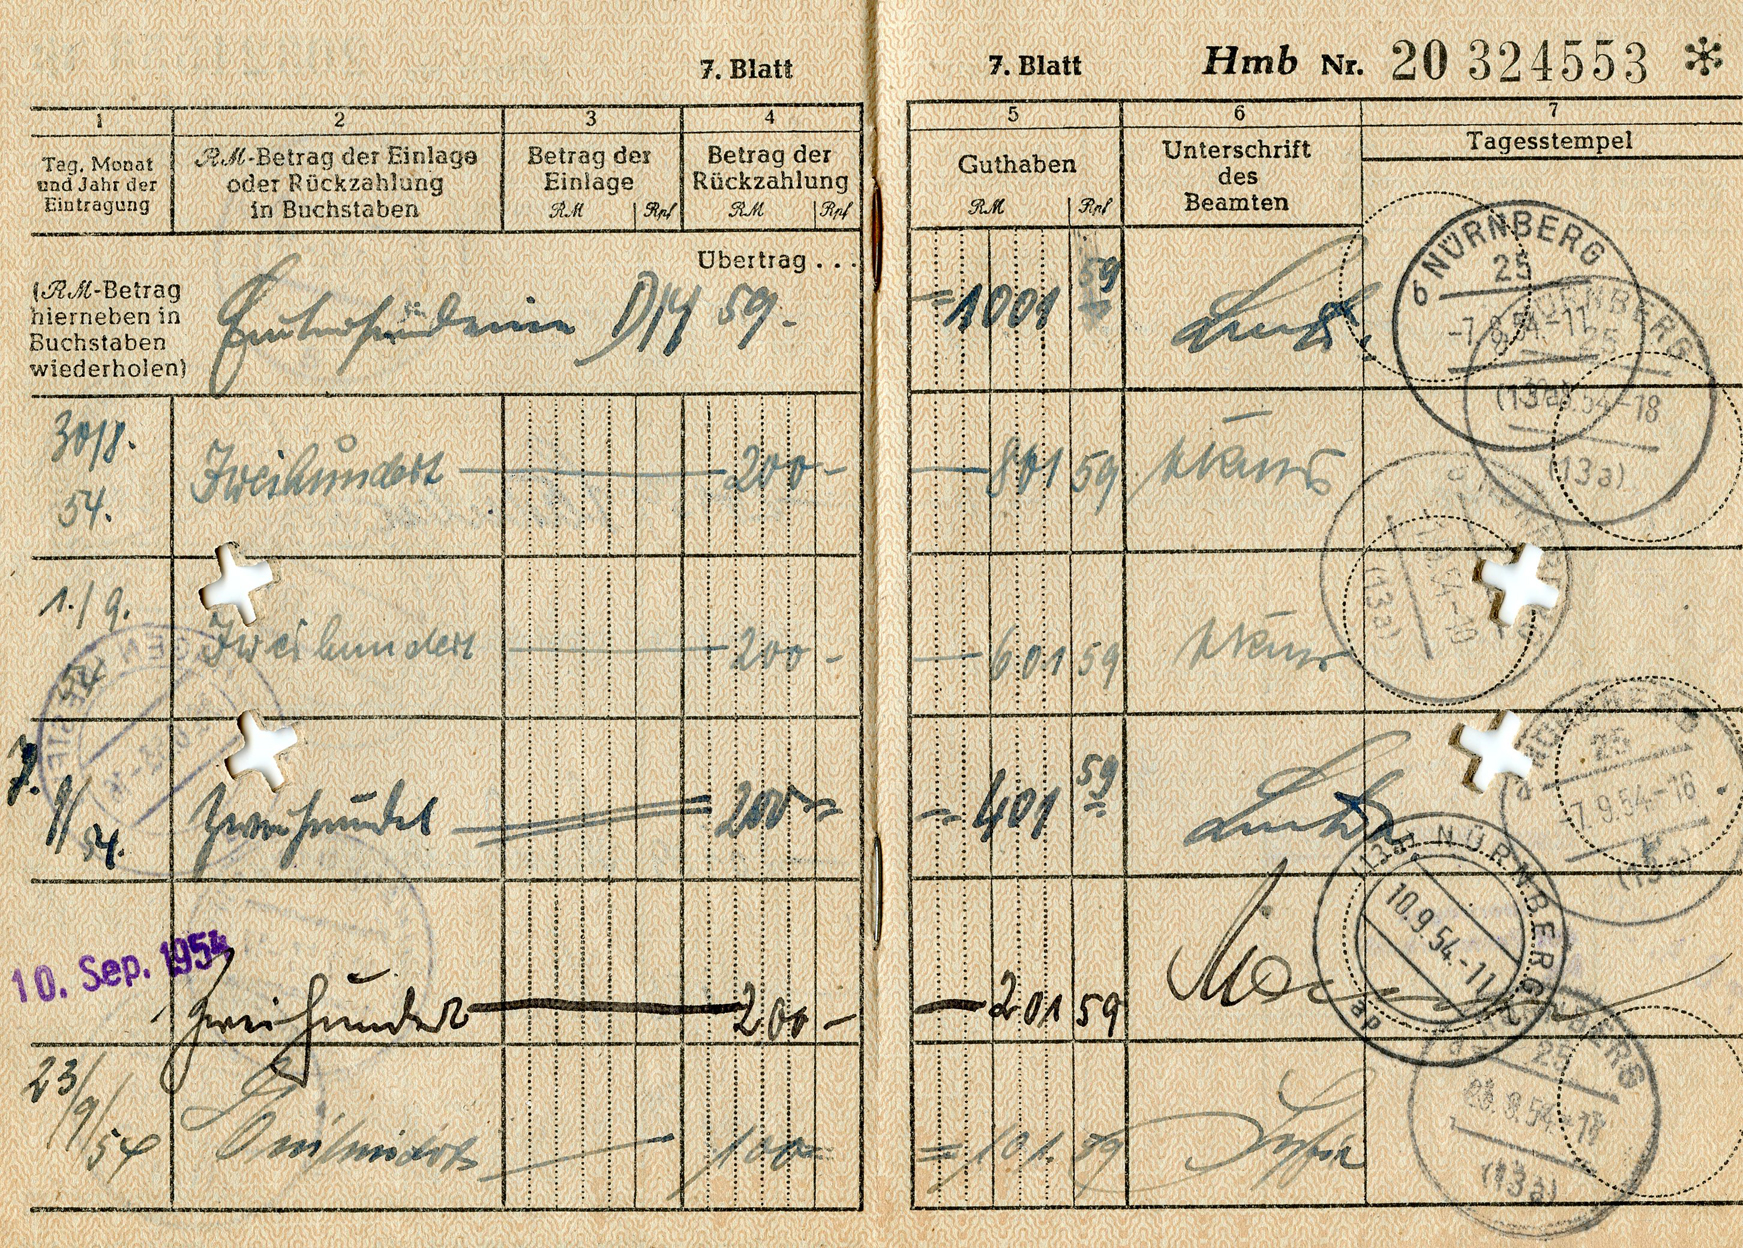 7. Blatt
7. Blatt Hmb Nr. 20 324553 *
1 2 3 4 5 6 7
Tag, Monat
und Jahr der
Eintragung
RM-Betrag der Einlage
oder Rückzahlung
in Buchstaben
Betrag der
Einlage
RM Rpf
Betrag der
Rückzahlung
RM Rpf
Guthaben
RM Rpf
Unterschrift
des
Beamten
Tagesstempel
Übertrag . . .
(RM-Betrag
hierneben in
Buchstaben
wiederholen)
59.
=1001 59
NÜRNBERG
25
b
(13a)
NÜRNBERG
25
54-18
(13a)
30/8.
54.
Zweihundert 200- 801 59
1./9.
Zweihundert 200- 601 59
(13a)
7.
9/
54.
Zweihundert 200 =401 59
NÜRNBERG
25
-7.9.54.-16
(13a)
10. Sep. 1954
Zweihundert 200- 201 59
(13a) NÜRNBERG
10.9.54.-11
23/9/54
100= =101.59
25
(13a)